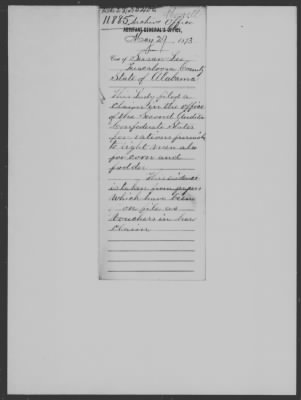 11885 Archive Office
ADJUTANT-GENERAL'S OFFICE,
May 29, 1873
Case of Susan Lee
Tuscaloosa County
State of Alabama
This Lady filed a
claim in the office
of the Second Auditor
Confederate States
for rations furnished
to eight men also
for corn and
fodder
This evidence
is taken from papers
which have been
on file as
vouchers in her
claim